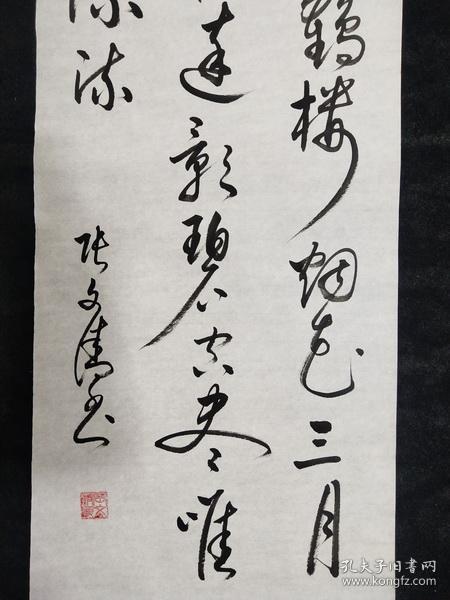 鹤楼烟花三月
远影碧空尽唯
际流
张文清书
孔夫子旧书网
www.kongfz.com